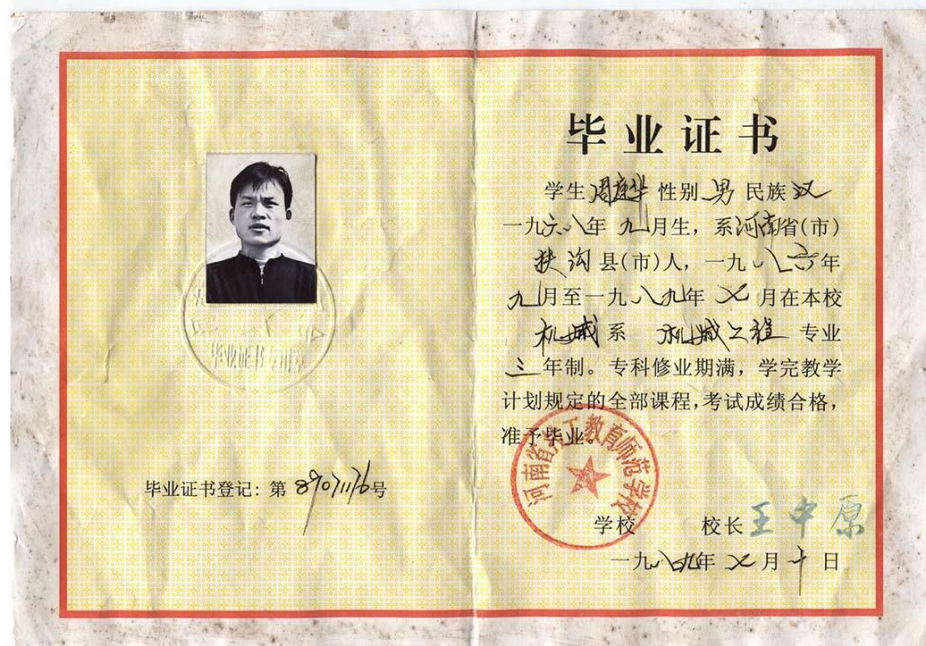 毕业证书登记：第89071176号
毕业证书专用章
毕业证书
学生 周建华 性别 男 民族 汉
一九六八年 九月生，系河南省（市）
扶沟县（市）人，一九八六年
九月至一九八九年 七月在本校
机械系 机械工程 专业
三年制。专科修业期满，学完教学
计划规定的全部课程，考试成绩合格，
准予毕业。
河南省劳工教育师范学校
学校 校长 王中原
一九八九年 七月十日